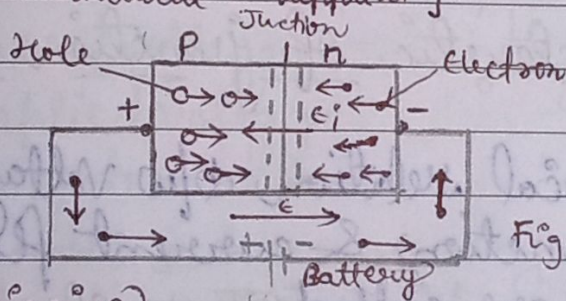 Juction
Hole P n Electron
+ Ei -
E
+ - Fig
Battery